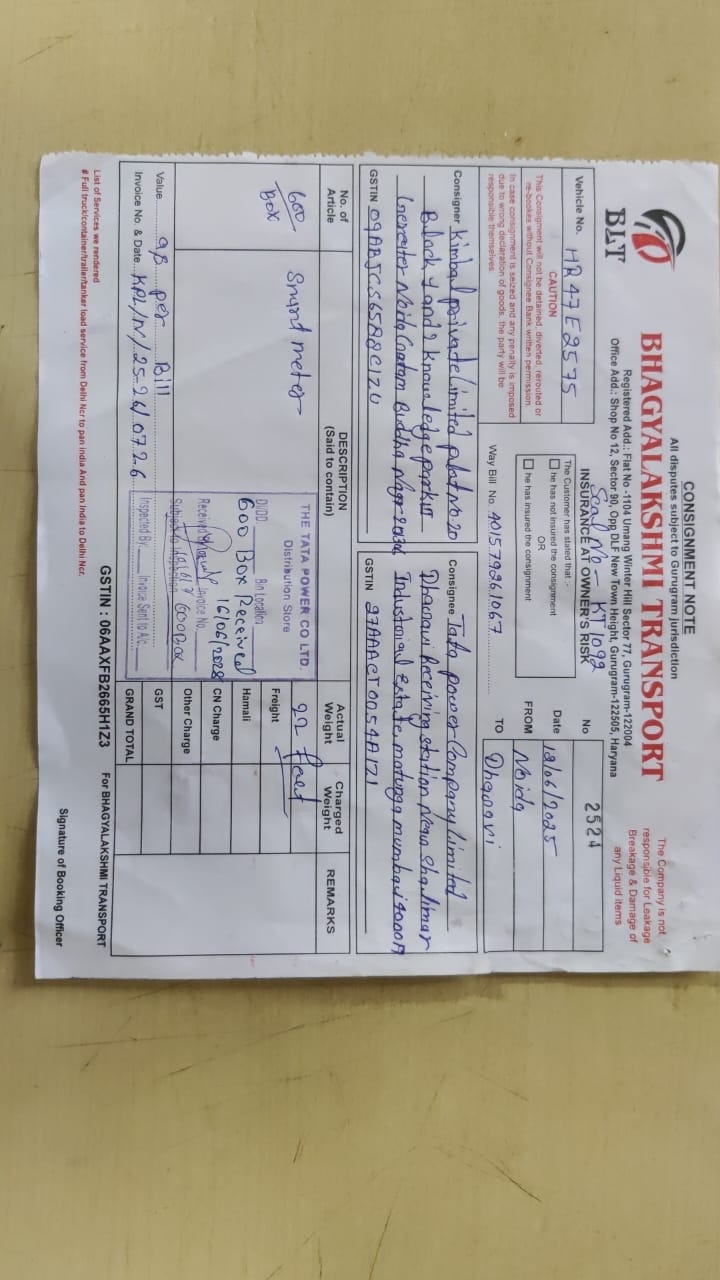 CONSIGNMENT NOTE
All disputes subject to Gurugram jurisdiction
BLT
BHAGYALAKSHMI TRANSPORT
Registered Add.: Flat No -1104 Umang Winter Hill Sector 77, Gurugram-122004
Office Add.: Shop No 12, Sector 90, Opp DLF New Town Height, Gurugram-122505, Haryana
The Company is not
responsible for Leakage
Breakage & Damage of
any Liquid items
Vehicle No. HR47E2575
CAUTION
This Consigment will not be detained, diverted, rerouted or
re-bookes without Consignee Bank written permission
In case consignment is seized and any penalty is imposed
due to wrong declaration of goods, the party will be
responsible themselves.
Seal No - KT1092
INSURANCE AT OWNER'S RISK
The Customer has stated that :-
he has not insured the consigment
OR
he has insured the consignment
Way Bill No. 401579261067
No 2524
Date 12/06/2025
FROM Noida
TO Dharavi
Consigner Kimbal private limited plot No 20
Block 1 and 2 knowledge park III
Greater Noida Gautam Buddha Nagar
GSTIN
Consignee Tata power Company limited
Dharavi Receiving station New Shalimar
Industrial Estate, matunga mumbai
GSTIN 27AAACT0054A1Z1
No. of
Article
DESCRIPTION
(Said to contain)
Actual
Weight
Charged
Weight
REMARKS
600
Box
Smart meter
22 Feet
THE TATA POWER CO LTD.
Distribution Store
Bin Location
600 Box Received
16/06/2025
Received Invoice No.
Subject to Inspection 600 Box
Inspected By: Invoice Sent to A/c.
Freight
Hamali
CN Charge
Other Charge
GST
GRAND TOTAL
Value as per Bill
Invoice No. & Date KPL/IV/25-26/0726
List of Services we rendered
# Full truck/container/trailer/tanker load service from Delhi Ncr to pan india And pan india to Delhi Ncr.
GSTIN : 06AAXFB2665H1Z3
For BHAGYALAKSHMI TRANSPORT
Signature of Booking Officer